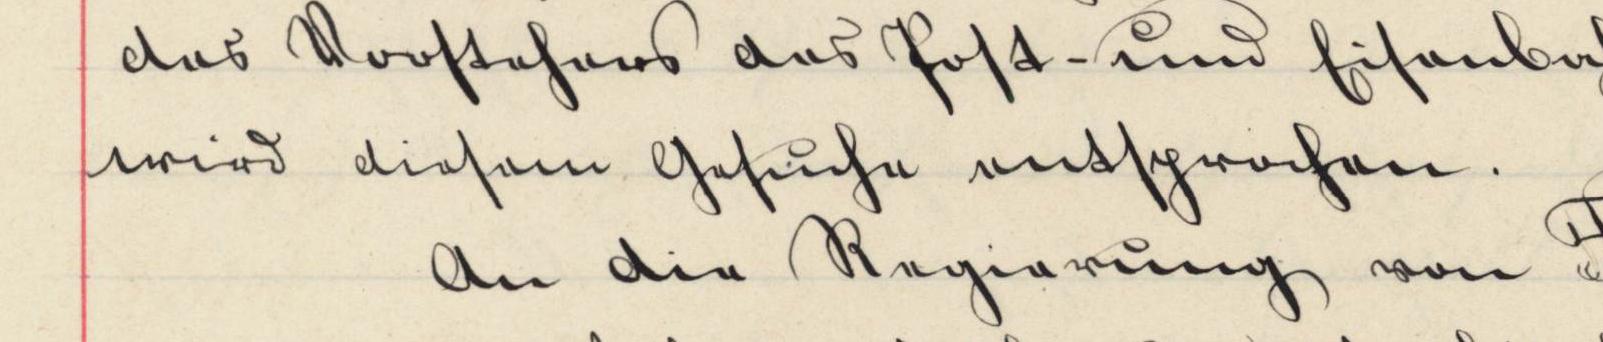 des Vorstehers des Post- und Eisenba
wird diesem Gesuche entsprochen.
An die Regierung von